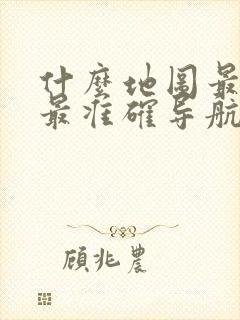 什麼地图最
最准確导航
顾兆農